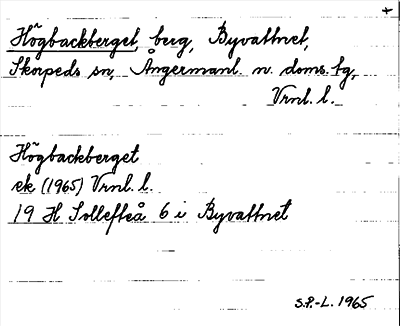 Högbackberget, berg, Byvattnet,
Skorpeds sn, Ångermanl. n. doms. tg,
Vrnl. l.
Högbackberget
ek (1965) Vrnl. l.
19 H Sollefteå 6 i Byvattnet
S.P.-L. 1965